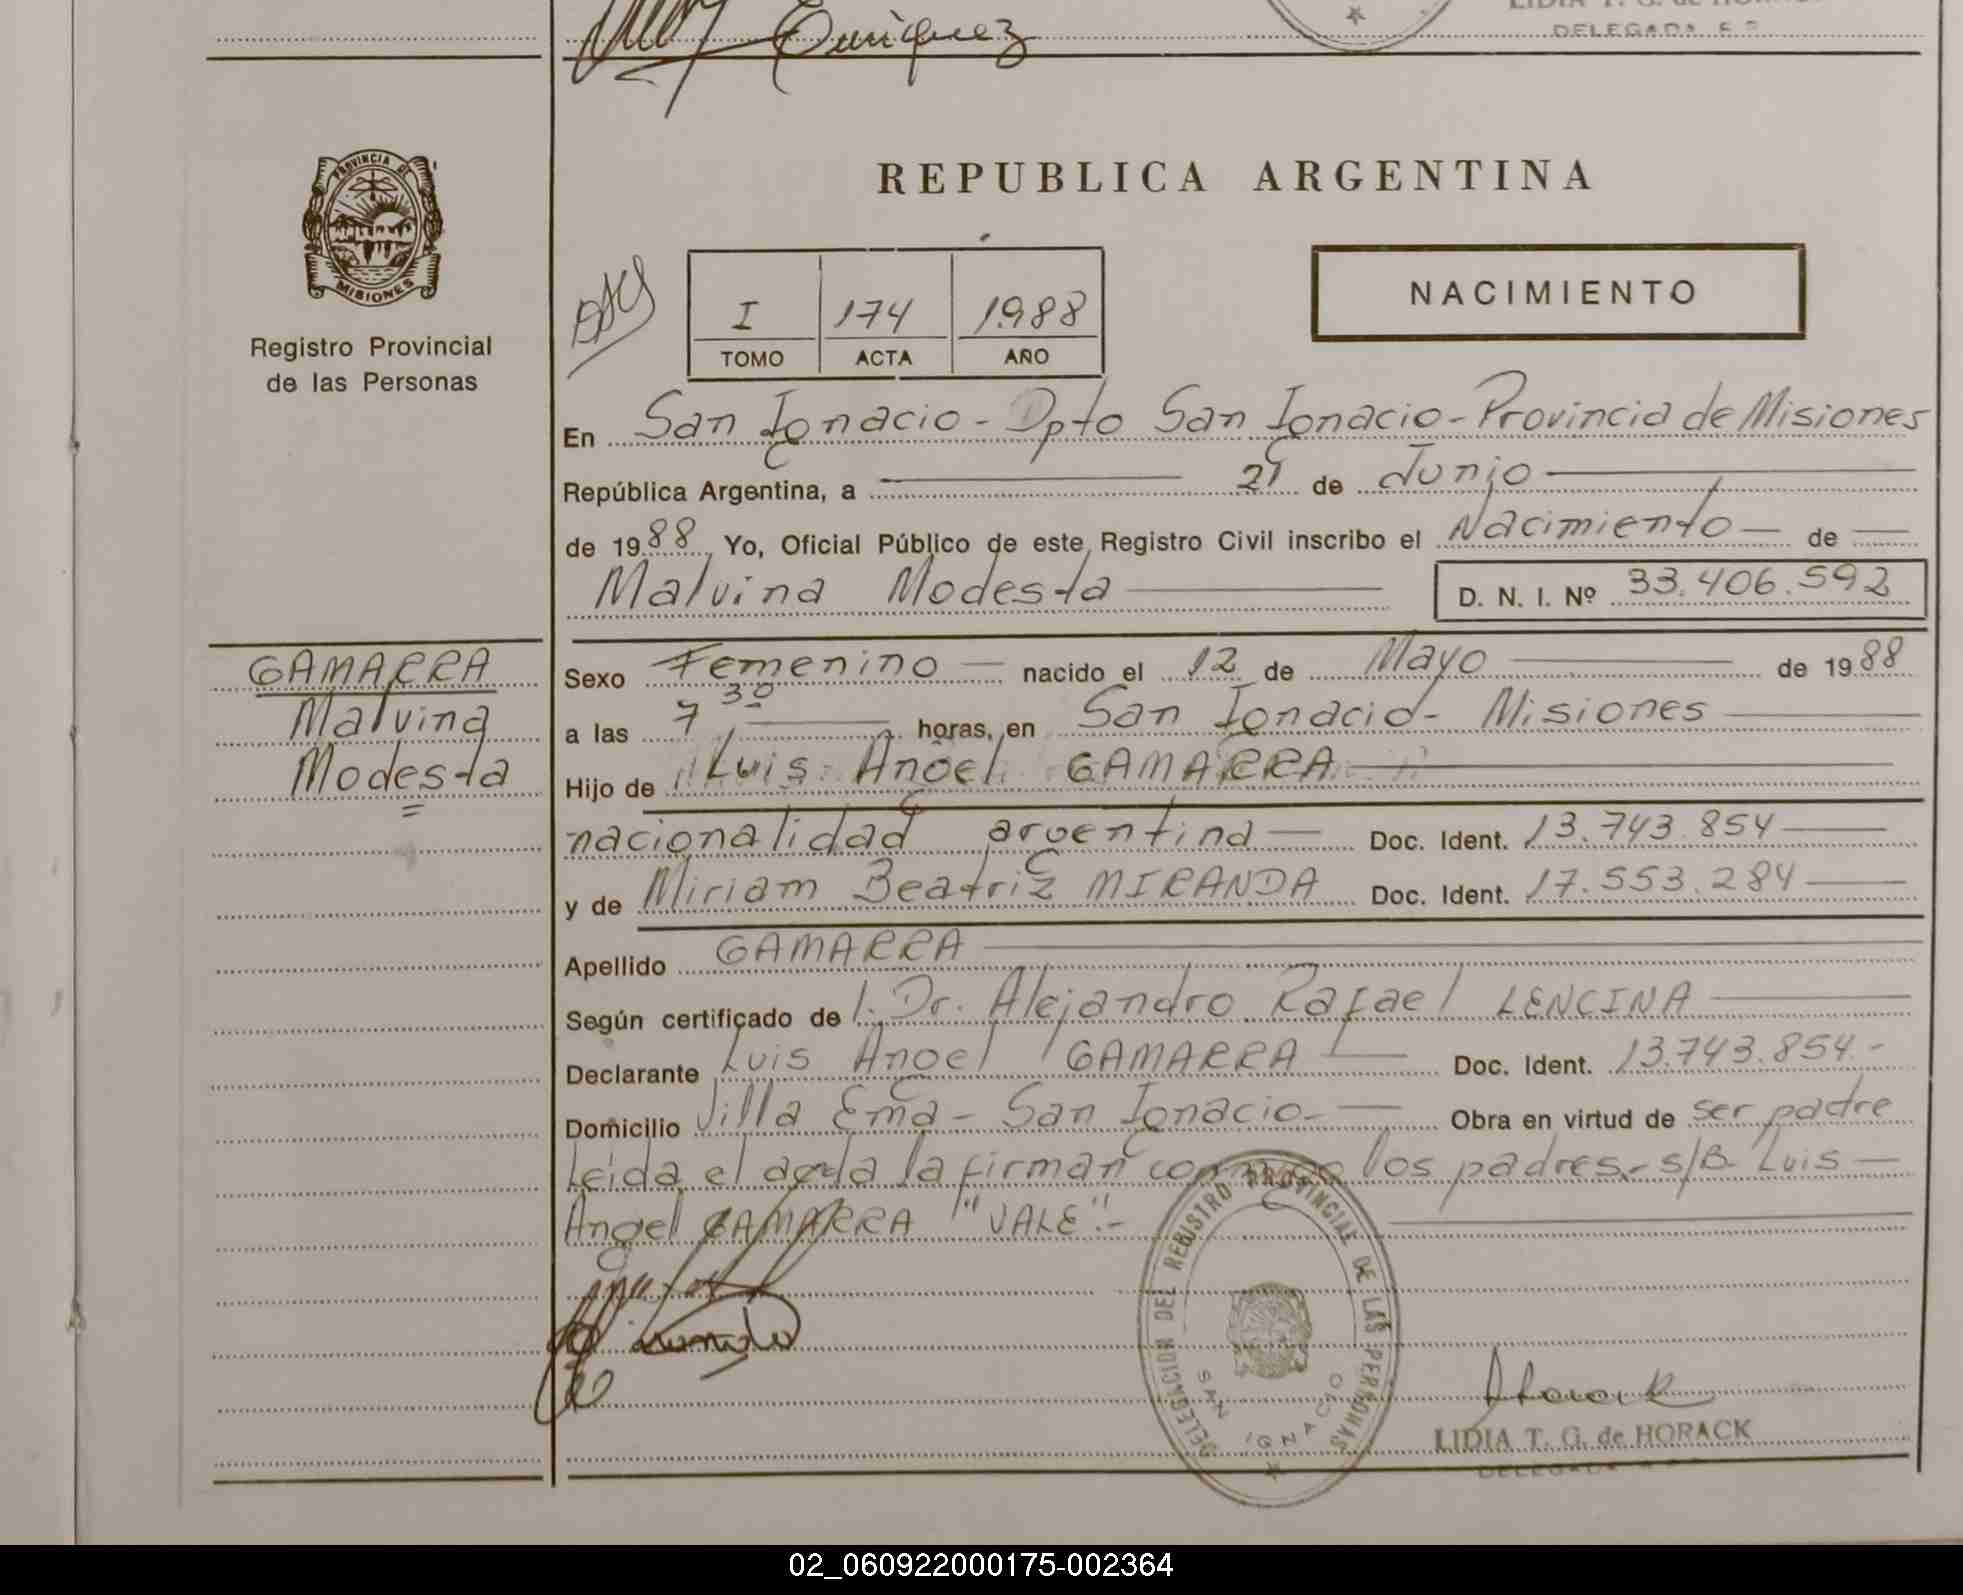 Enriquez
DELEGADA
PROVINCIA DE
MISIONES
Registro Provincial
de las Personas
REPUBLICA ARGENTINA
I 174 1988
TOMO ACTA AÑO
NACIMIENTO
En San Ignacio - Dpto San Ignacio - Provincia de Misiones
República Argentina, a 21 de Junio
de 1988, Yo, Oficial Público de este Registro Civil inscribo el Nacimiento de
Malvina Modesta D. N. I. Nº 33.406.592
GAMARRA
Malvina
Modesta
Sexo Femenino nacido el 12 de Mayo de 1988
a las 7 30 horas, en San Ignacio - Misiones
Hijo de Luis Angel GAMARRA
nacionalidad argentina Doc. Ident. 13.743.854
y de Miriam Beatriz MIRANDA Doc. Ident. 17.553.284
Apellido GAMARRA
Según certificado de l. Dr. Alejandro Rafael LENCINA
Declarante Luis Angel GAMARRA Doc. Ident. 13.743.854.-
Domicilio Villa Ema - San Ignacio - Obra en virtud de ser padre
Leida el acta la firman conmigo los padres.- s/B. Luis
Angel GAMARRA "VALE".-
DELEGACION DEL REGISTRO PROVINCIAL DE LAS PERSONAS
SAN IGNACIO
Horack
LIDIA T. G. de HORACK
DELEGADA
02_060922000175-002364